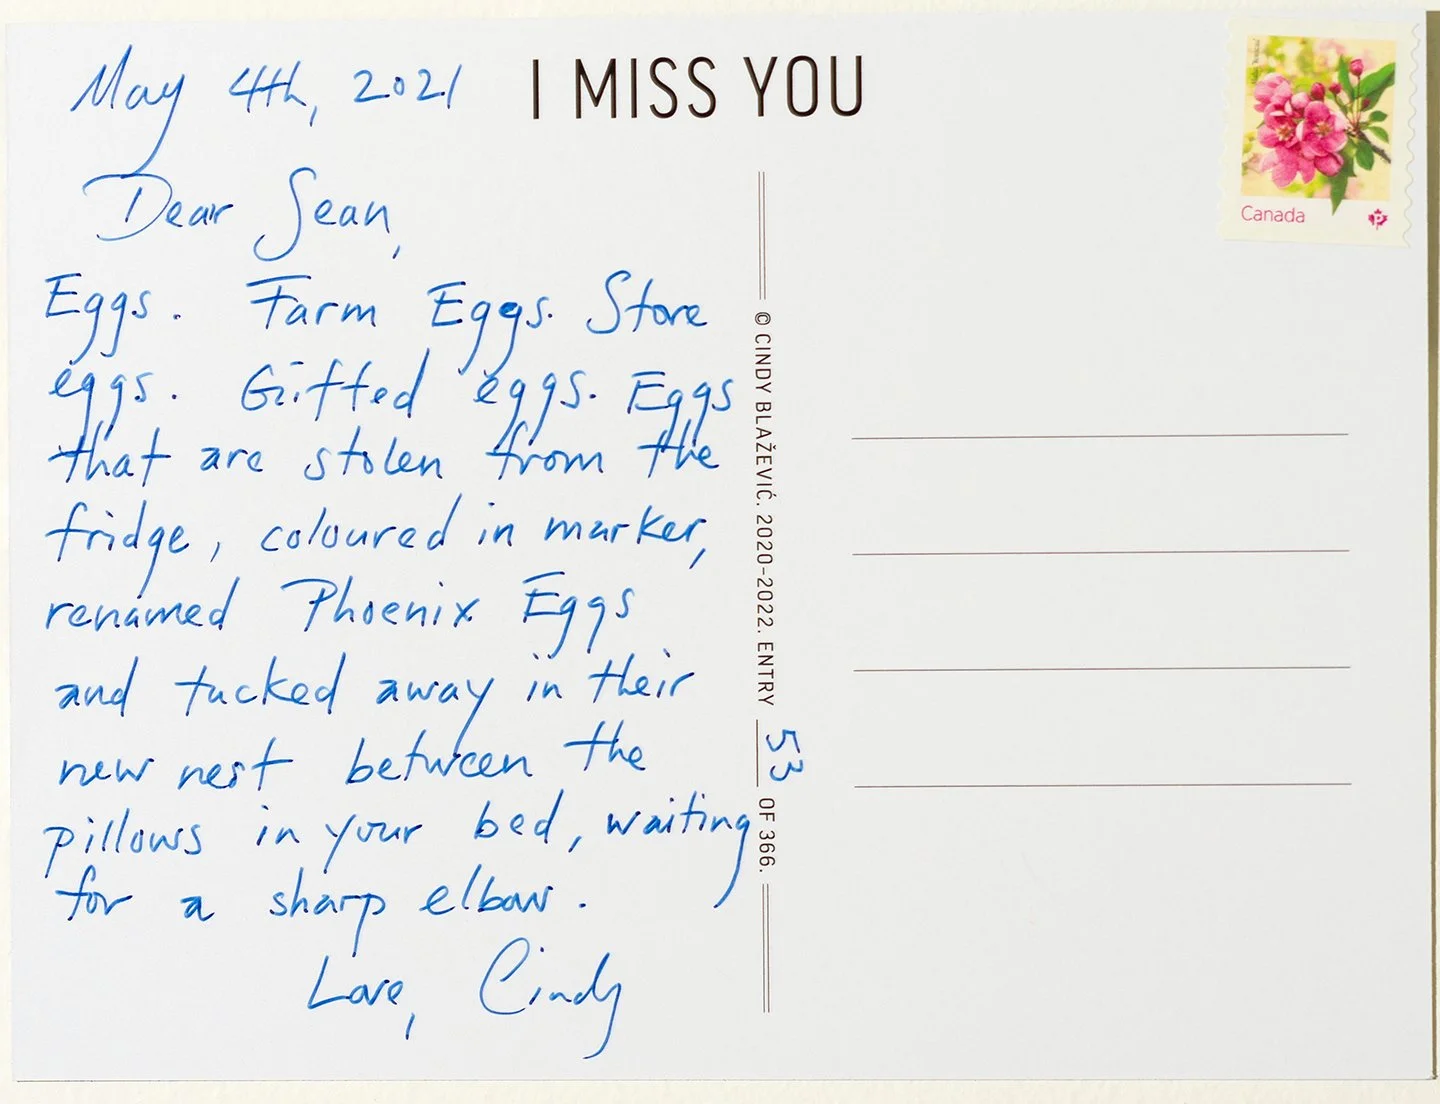 May 4th, 2021
I MISS YOU
Dear Sean,
Eggs. Farm Eggs. Store
eggs. Gifted eggs. Eggs
that are stolen from the
fridge, coloured in marker,
renamed Phoenix Eggs
and tucked away in their
new nest between the
pillows in your bed, waiting
for a sharp elbow.
Love, Cindy
© CINDY BLAŽEVIĆ. 2020-2022. ENTRY 53 OF 366.
Canada
P